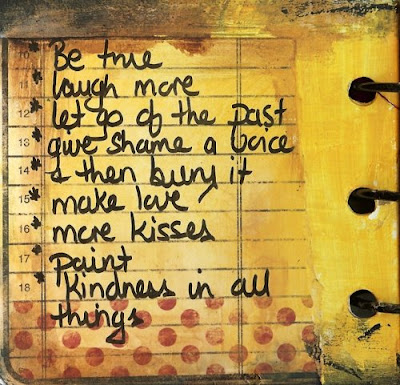 Be true
11 laugh more
12 let go of the past
13 give shame a voice
14 & then bury it
15 make love
16 more kisses
17 paint
18 Kindness in all
things